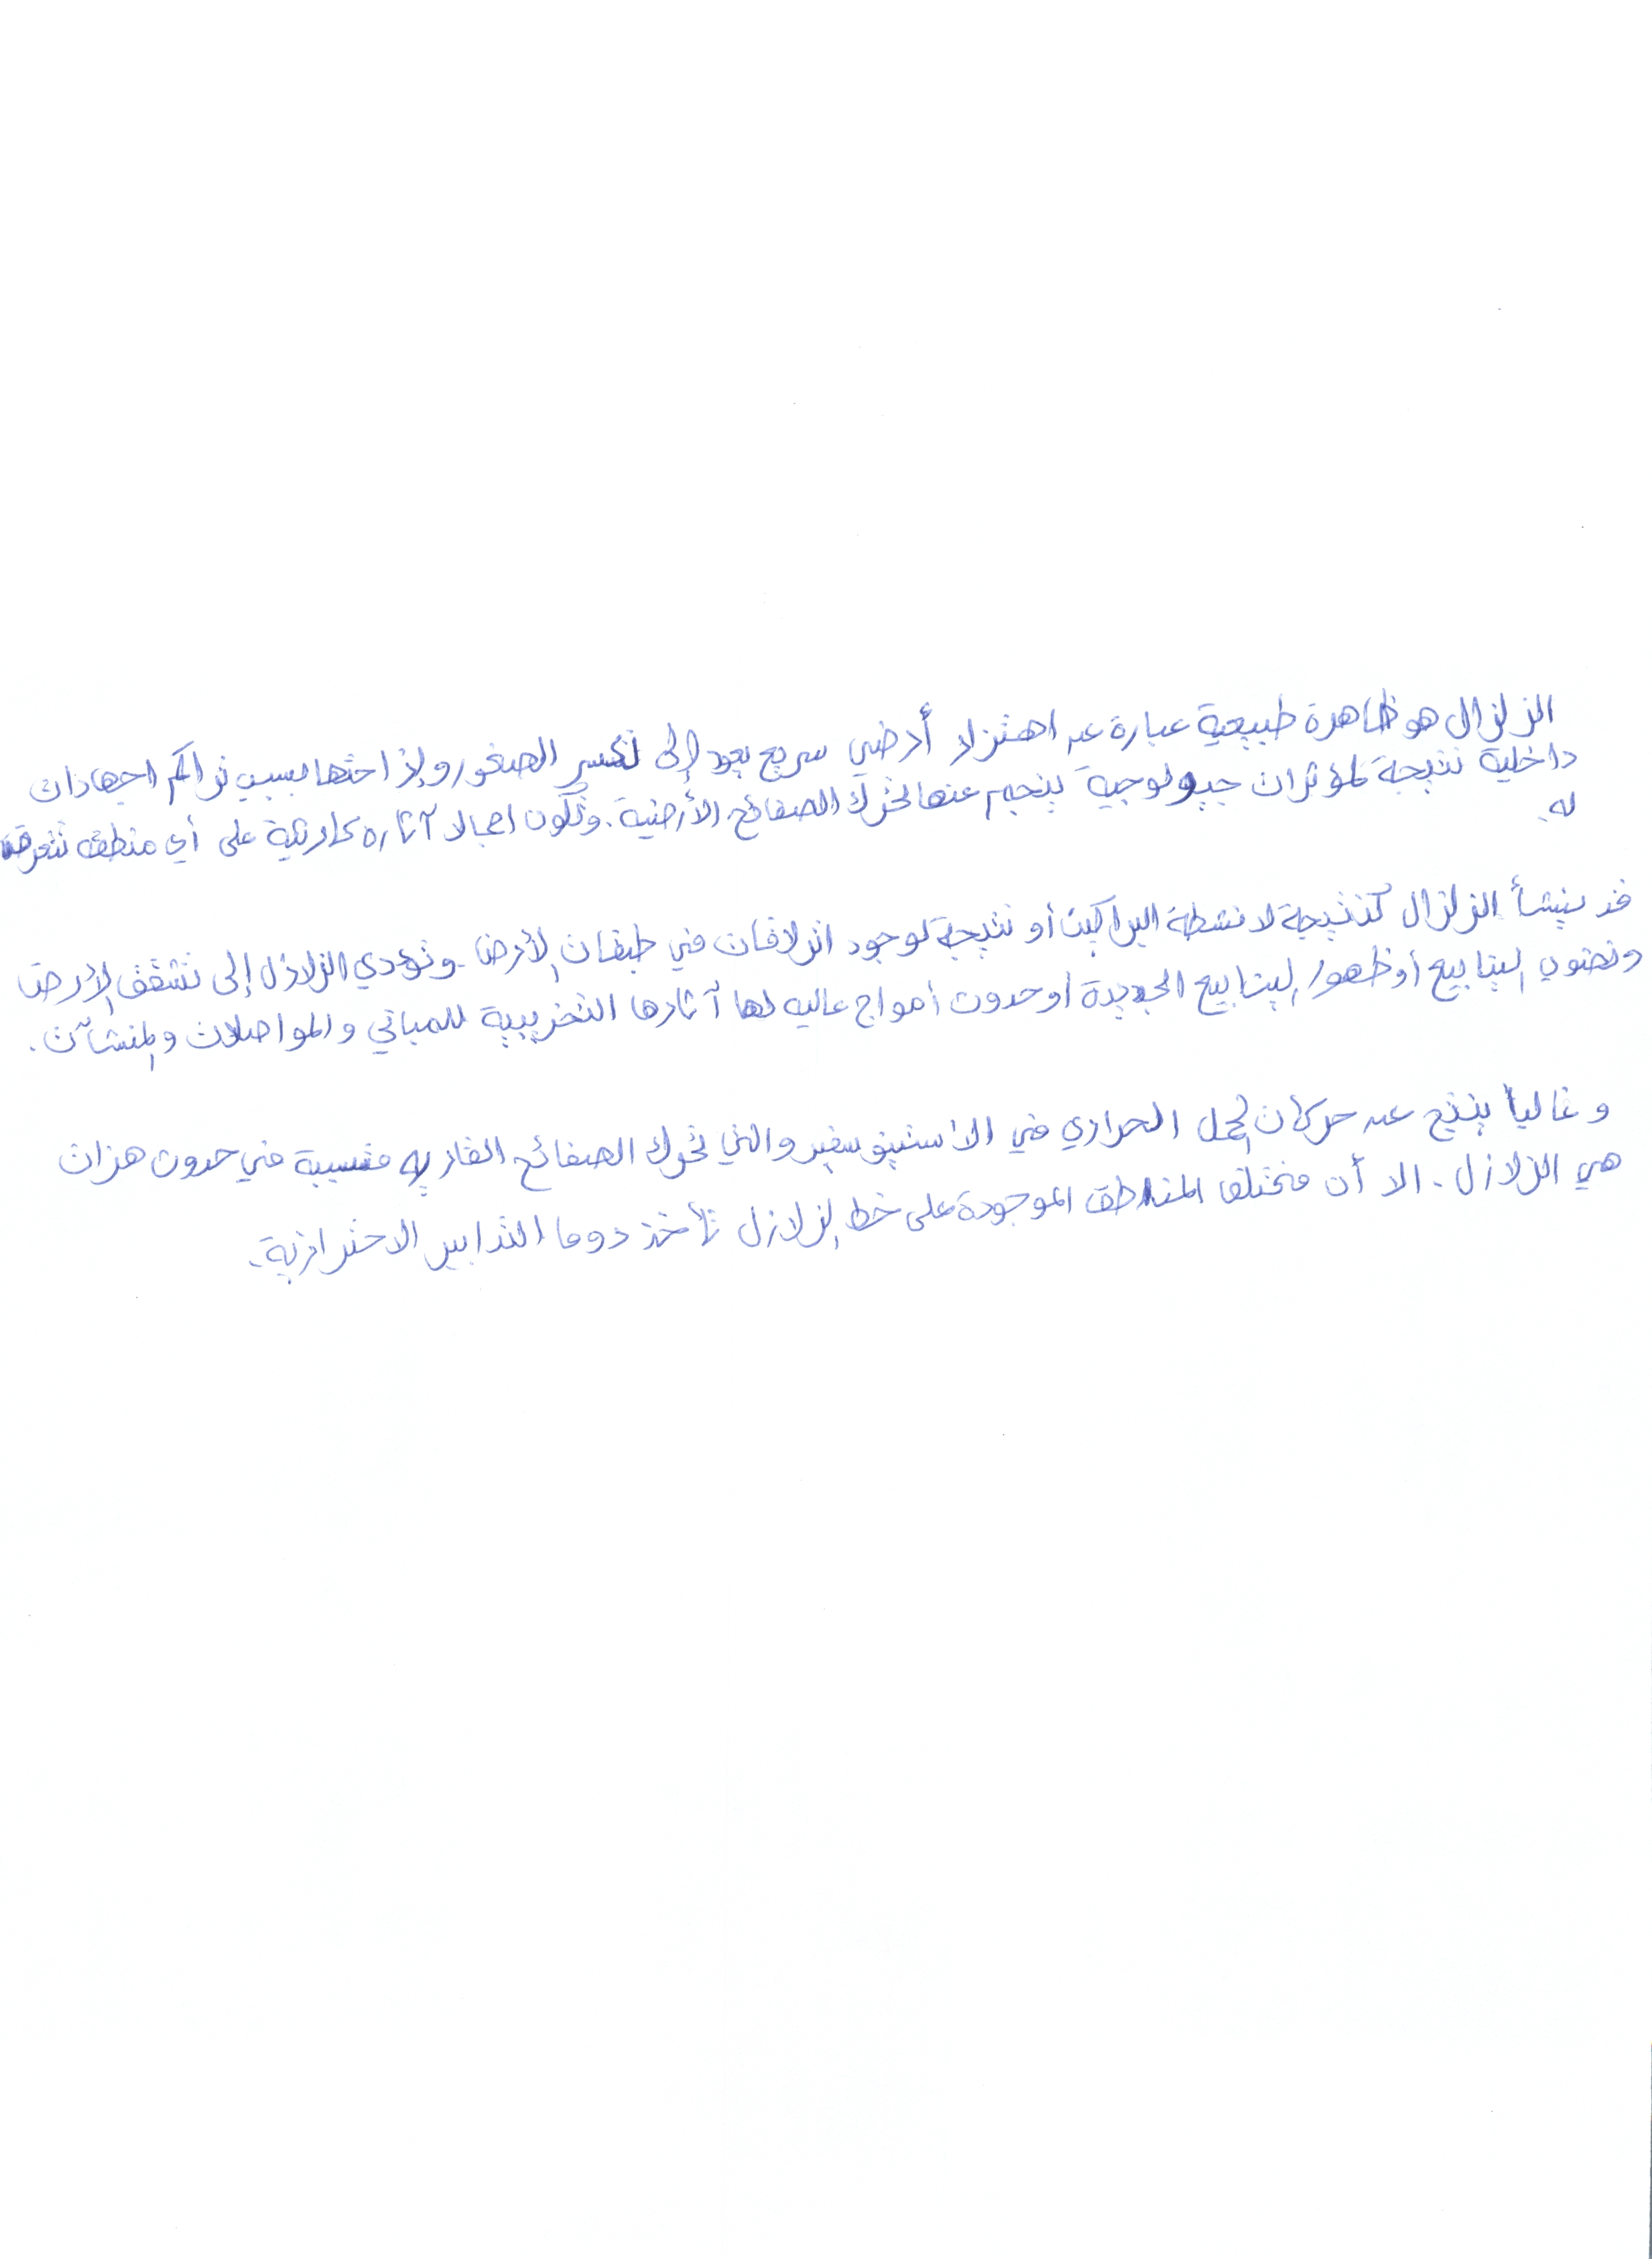 الزلزال هو ظاهرة طبيعية عبارة عن اهتزاز أرضي سريع يعود إلى تكسر الصخور وإزاحتها بسبب تراكم اجهادات
داخلية نتيجة لمؤثرات جيولوجية ينجم عنها تحرك الصفائح الأرضية. وتكون اجمالا آثاره كارثية على أي منطقه تتعرض
له.
قد ينشأ الزلزال كنتيجة لانشطة البراكين أو نتيجة لوجود انزلاقات في طبقات الأرض. وتؤدي الزلازل إلى تشقق الأرض
ونضوب الينابيع أو ظهور الينابيع الجديدة او حدوث أمواج عاليه لها آثارها التخريبية للمباني والمواصلات والمنشآت.
وغالبا ينتج عن حركات الحمل الحراري في الاستينوسفير والتي تحرك الصفائح القاريه متسببة في حدوث هزات
هي الزلازل. الا أن مختلف المناطق الموجودة على خط الزلازل تأخذ دوما التدابير الاحترازية.